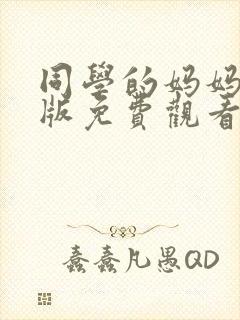 同學的妈妈
版免費觀看
蠢蠢凡愚QD